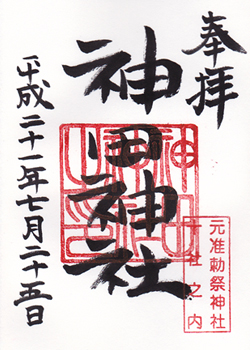 奉拝
元准勅祭神社
十社之内
神田神社
平成二十一年七月二十五日